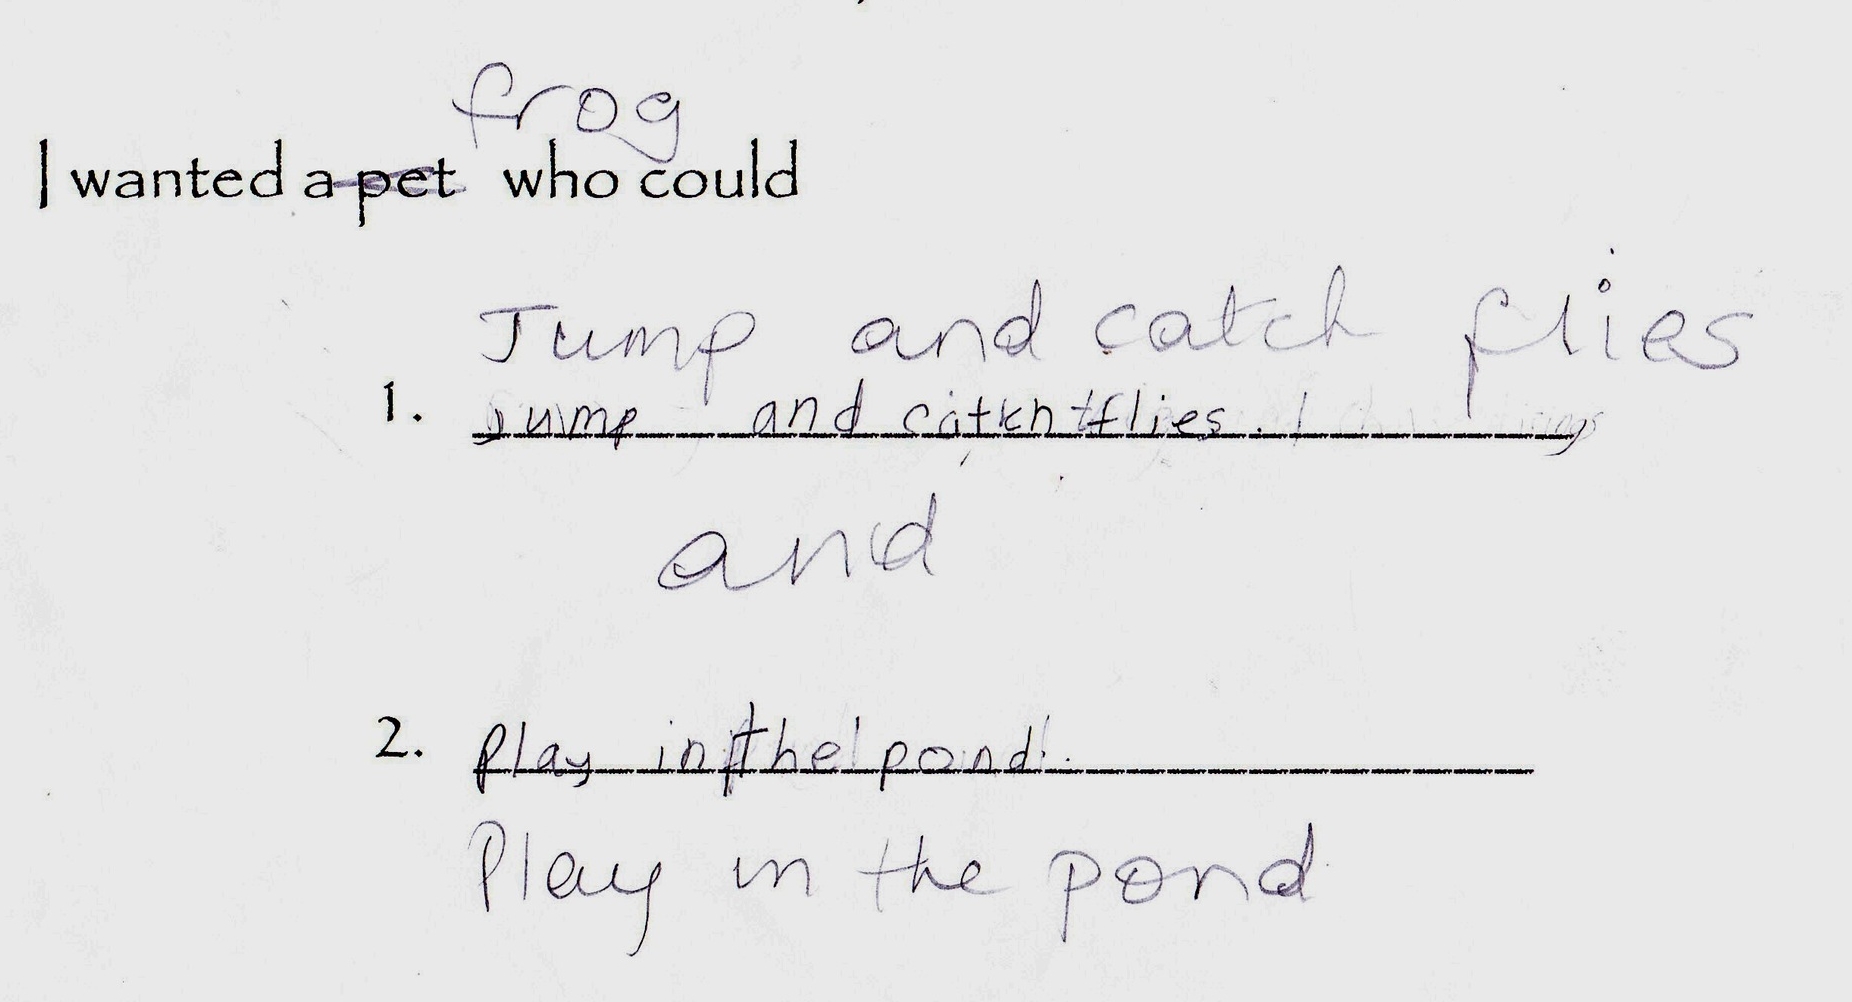 frog
I wanted a pet who could
Jump and catch flies
1. Jump and catkh flies.
and
2. play in the pond.
Play in the pond